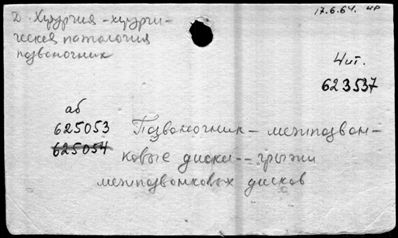 Д. Хирургия - хирурги-
ческая патология
позвоночник
17.6.64. ЧР
4 ит.
623537
аб
625053
625054
Позвоночник - межпозвон-
ковые диски -- грыжи
межпозвонковых дисков